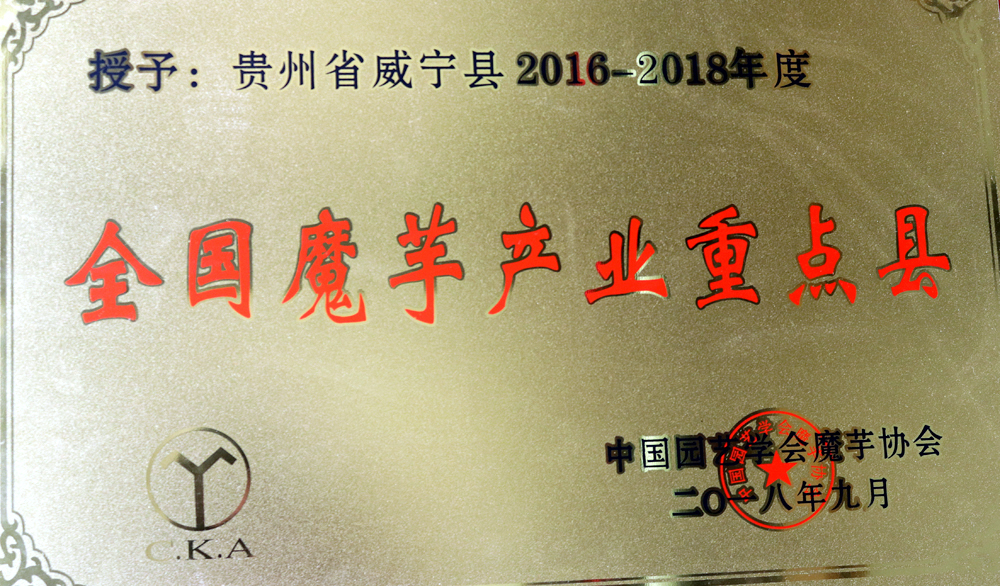 授予：贵州省威宁县2016-2018年度
全国魔芋产业重点县
中国园艺学会魔芋协会
二〇一八年九月
C.K.A